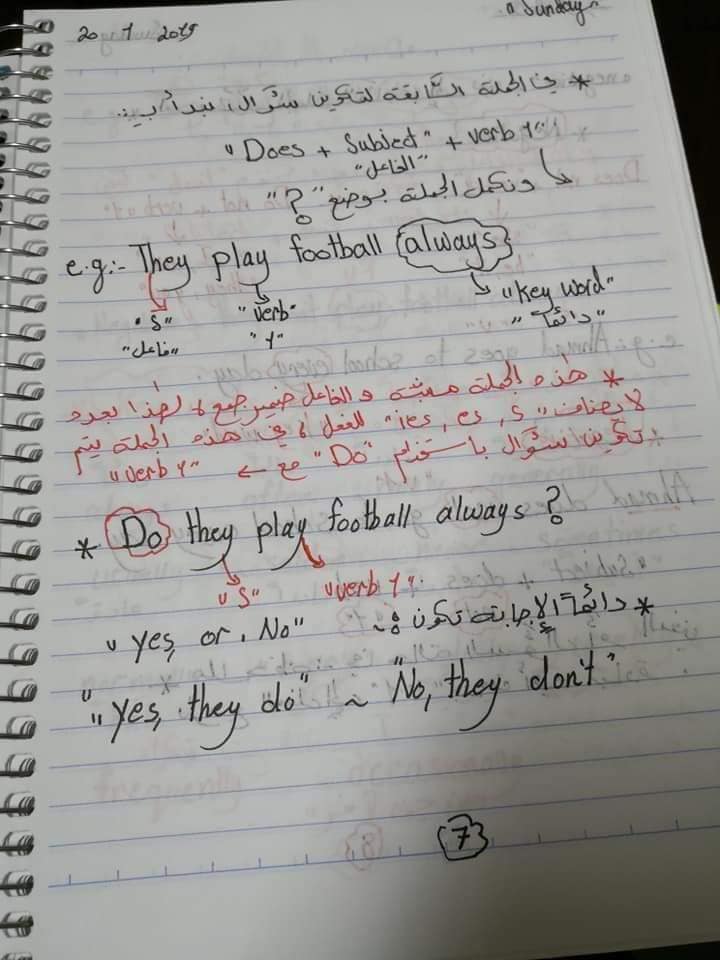 20 1 2019 "Sunday"
* في الجملة السّابقة لتكوين سؤال، نبدأ بـ:
"Does + Subject" + verb 1"
"الفاعل"
ونكمل الجملة بوضع "؟"
e.g:- They play football always
"S" "verb" "Key word"
"فاعل" "1" "دائماً"
* هذه الجملة مثبتة والفاعل ضمير جمع، لهذا
لا يضاف "ies, es, s" للفعل، في هذه الجملة يتم
تكوين سؤال باستخدام "Do" مع ← "verb 1"
* Do they play football always ?
"S" "verb 1"
* دائماً الإجابة تكون :~ "yes, or, No"
"yes, they do" ~ "No, they don't"
7